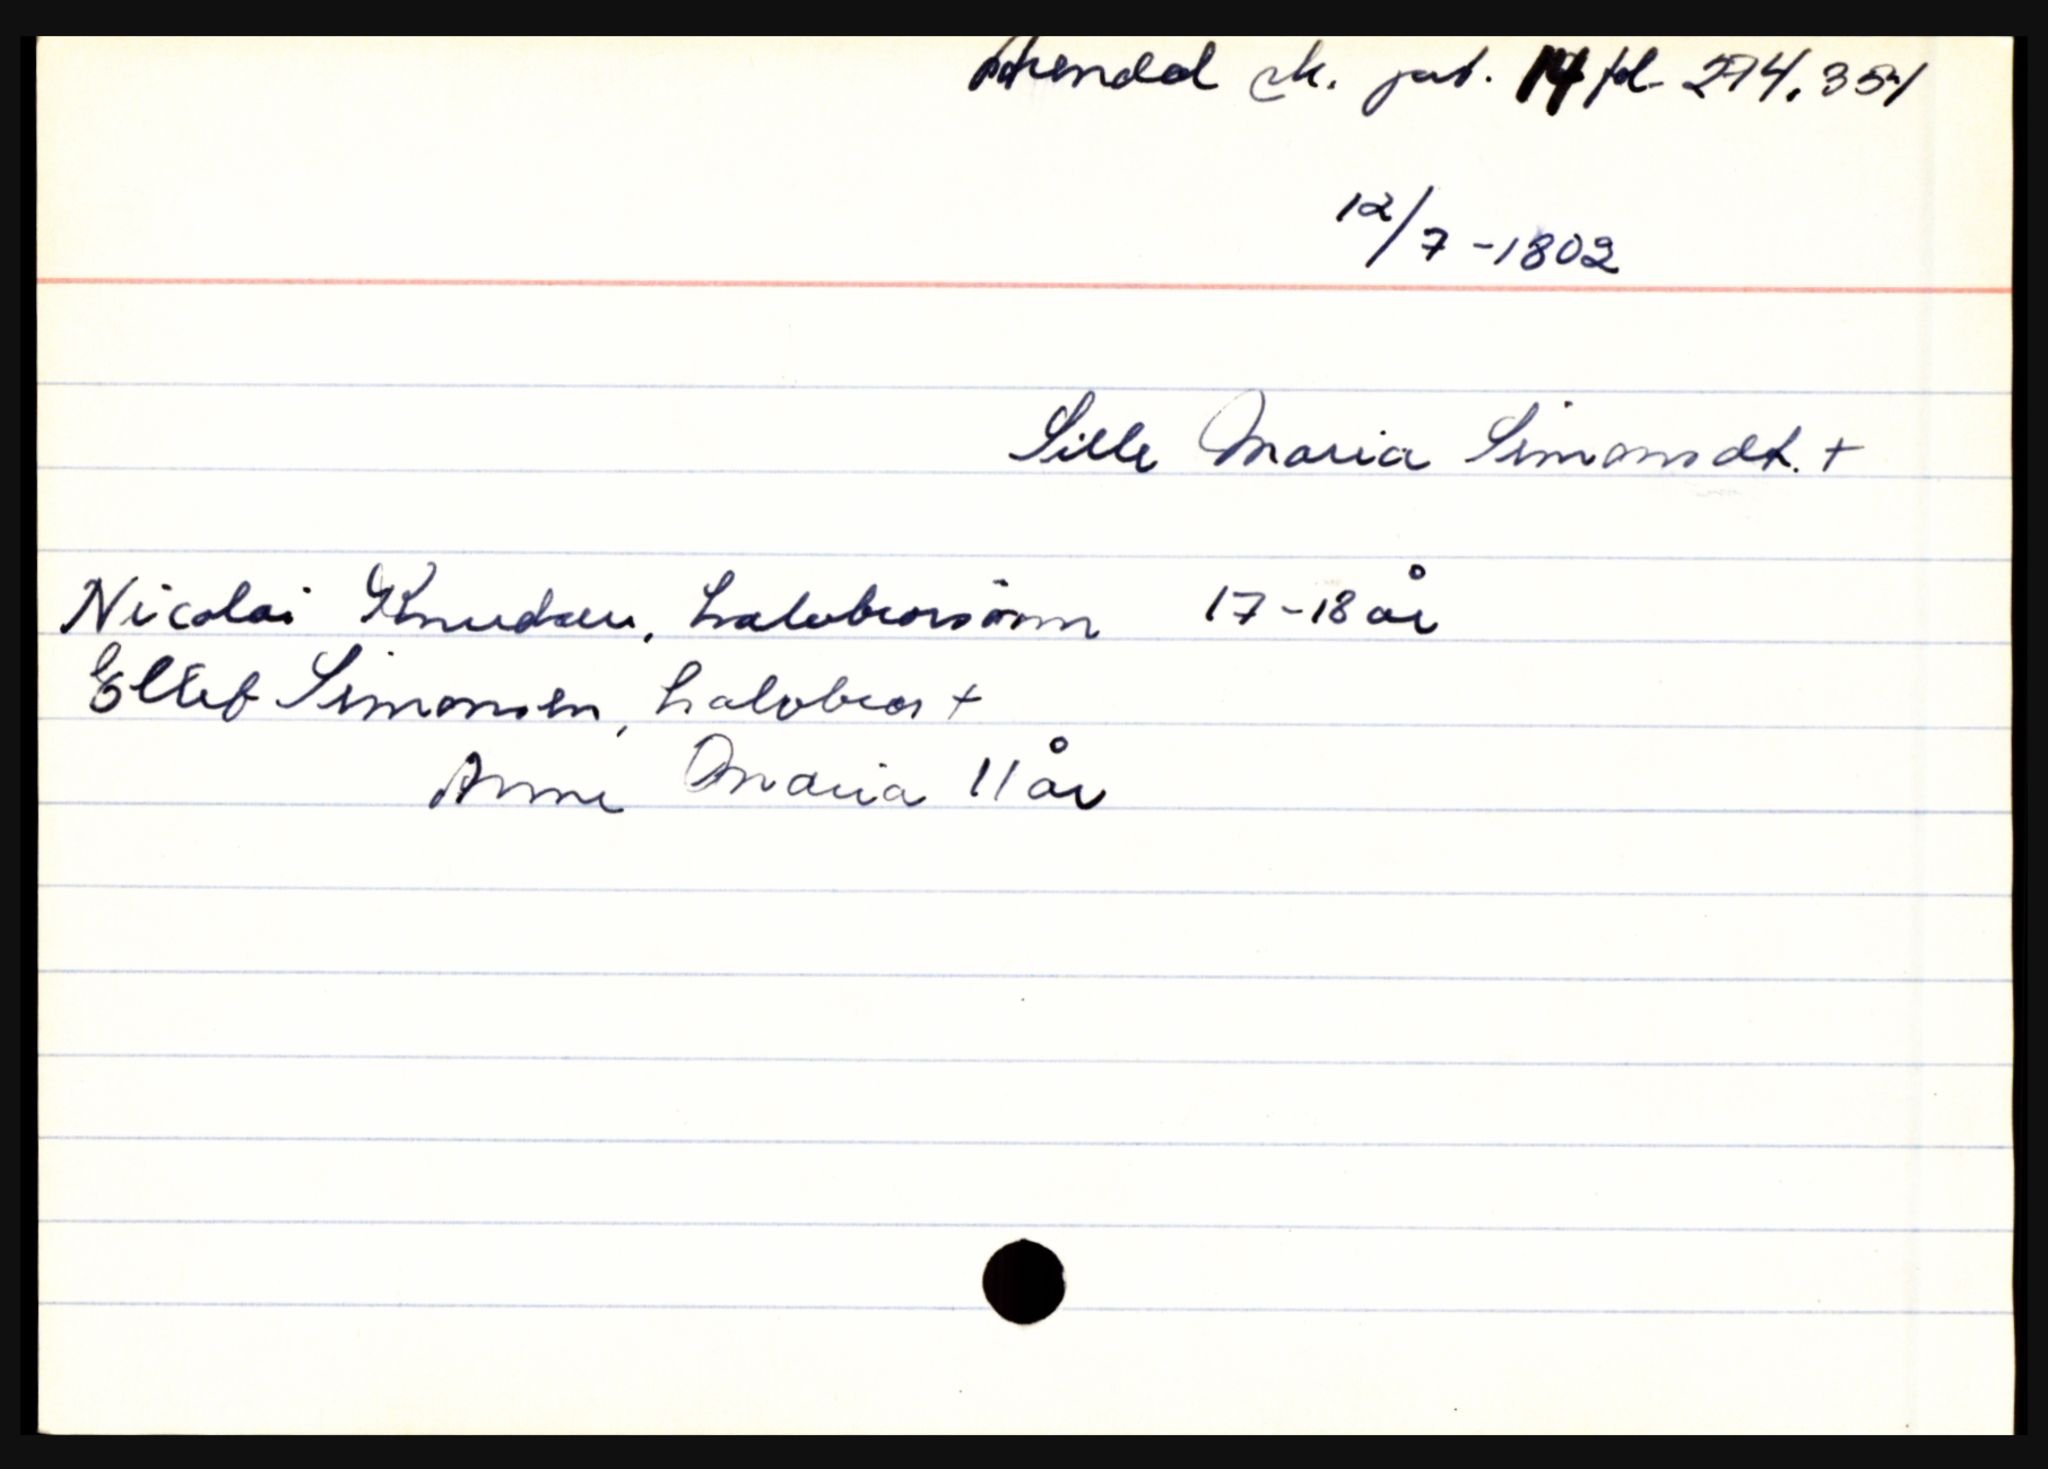 Arendal sk. prot. 14 fol. 274, 351
12/7 - 1802
Sille Maria Simonsdt. +
Nicolai Knudsen, halvbrorsönn 17-18 år
Ellef Simonsen, halvbror +
Anne Maria 11 år